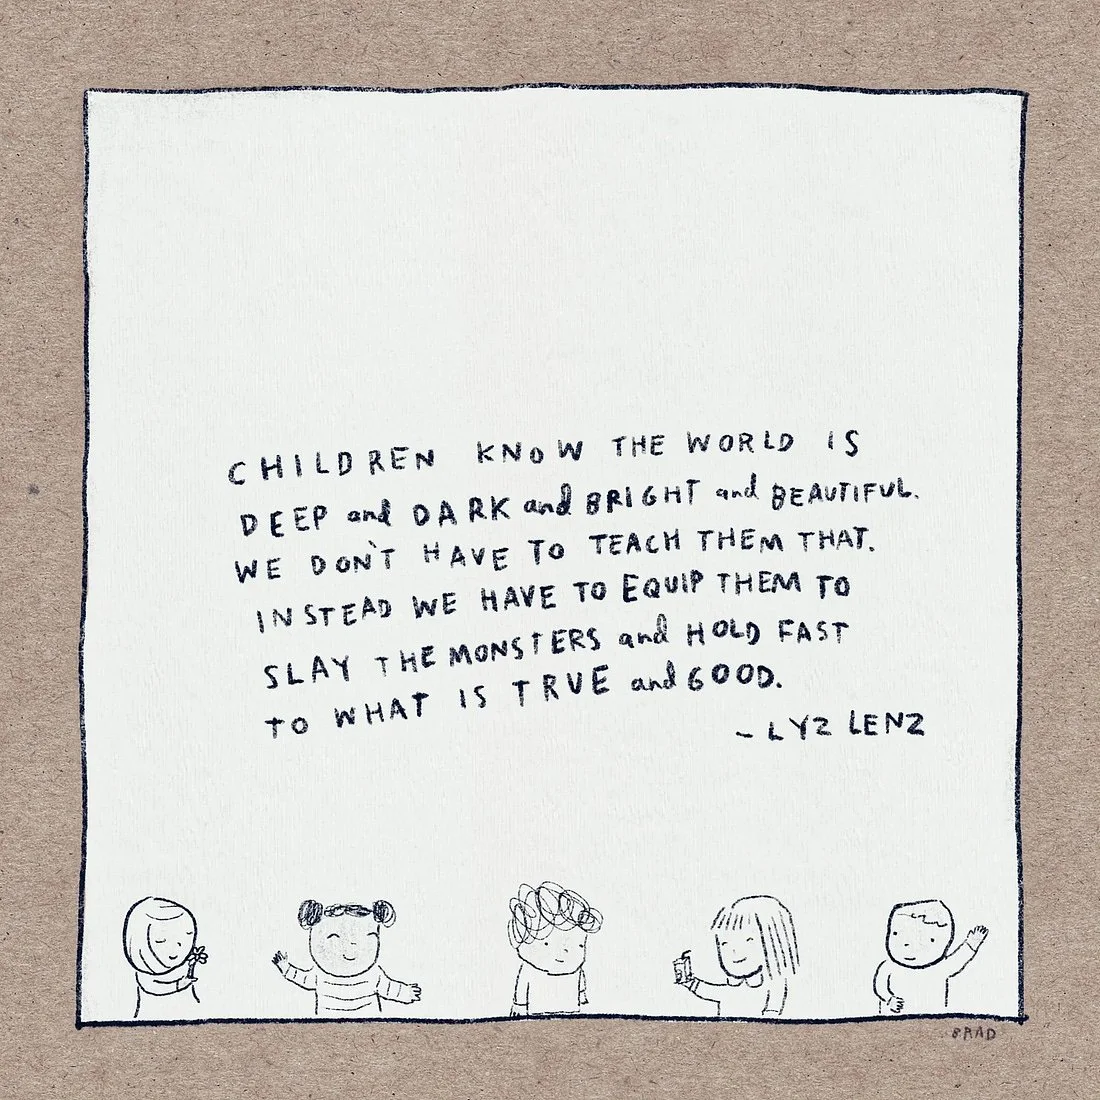 CHILDREN KNOW THE WORLD IS
DEEP and DARK and BRIGHT and BEAUTIFUL.
WE DON'T HAVE TO TEACH THEM THAT.
INSTEAD WE HAVE TO EQUIP THEM TO
SLAY THE MONSTERS and HOLD FAST
TO WHAT IS TRUE and GOOD.
- LYZ LENZ
BRAD